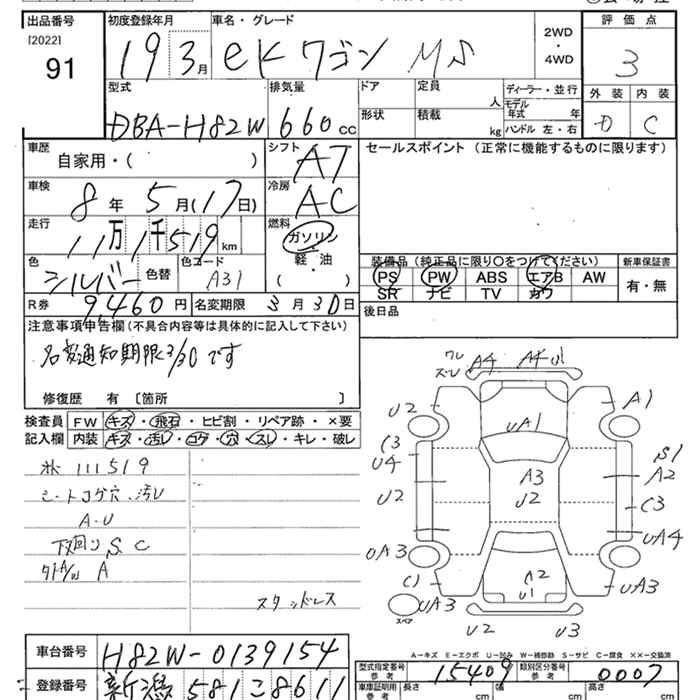 出品番号 初度登録年月 車名・グレード 評価点
[2022] 91 19 3月 eKワゴン MS 2WD・4WD 3
型式 排気量 ドア 定員 人 ディーラー・並行 外装 内装
DBA-H82W 660cc 形状 積載 kg モデル年式 年 ハンドル 左・右 D C
車歴 シフト セールスポイント(正常に機能するものに限ります)
自家用・( ) AT
車検 8年5月(17日) 冷房 AC
走行 11万1千519km 燃料 ガソリン
軽・油
( )
色 シルバー 色替 色コード A31
装備品(純正品に限り○をつけてください) 新車保証書
PS PW ABS エアB AW 有・無
SR ナビ TV カワ
R券 9,460円 名変期限 3月30日 後日品
注意事項申告欄(不具合内容等は具体的に記入して下さい)
名変通知期限3/30です
修復歴 有 [箇所 ]
検査員 FW キズ・飛石・ヒビ割・リペア跡・×要
記入欄 内装 キズ・汚レ・コゲ・穴・スレ・キレ・破レ
111519
シートコゲ穴、汚レ
A-U
下回りS、C
外A/W A
スタッドレス
ワレ
ズレ A4 A4 U1
U2 UA1 A1
C3 S1
U4 A3 A2
U2 U2 C3
UA3 UA4
C1 A2
U1 UA3
UA3
スペア
U2 U3
A-キズ E-エクボ U-凹み W-補修跡 S-サビ C-腐食 XX-交換済
車台番号 H82W-0139154
型式指定番号 参考 15409 類別区分番号 参考 0007
登録番号 新潟 581 に 8611
車庫証明用 参考 長さ cm 幅 cm 高さ cm